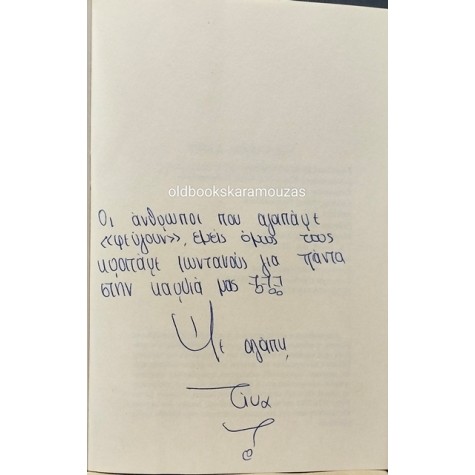 oldbookskaramouzas
Οι άνθρωποι που αγαπάμε
«φεύγουν», εμείς όμως τους
κρατάμε ζωντανούς για πάντα
στην καρδιά μας
Με αγάπη,